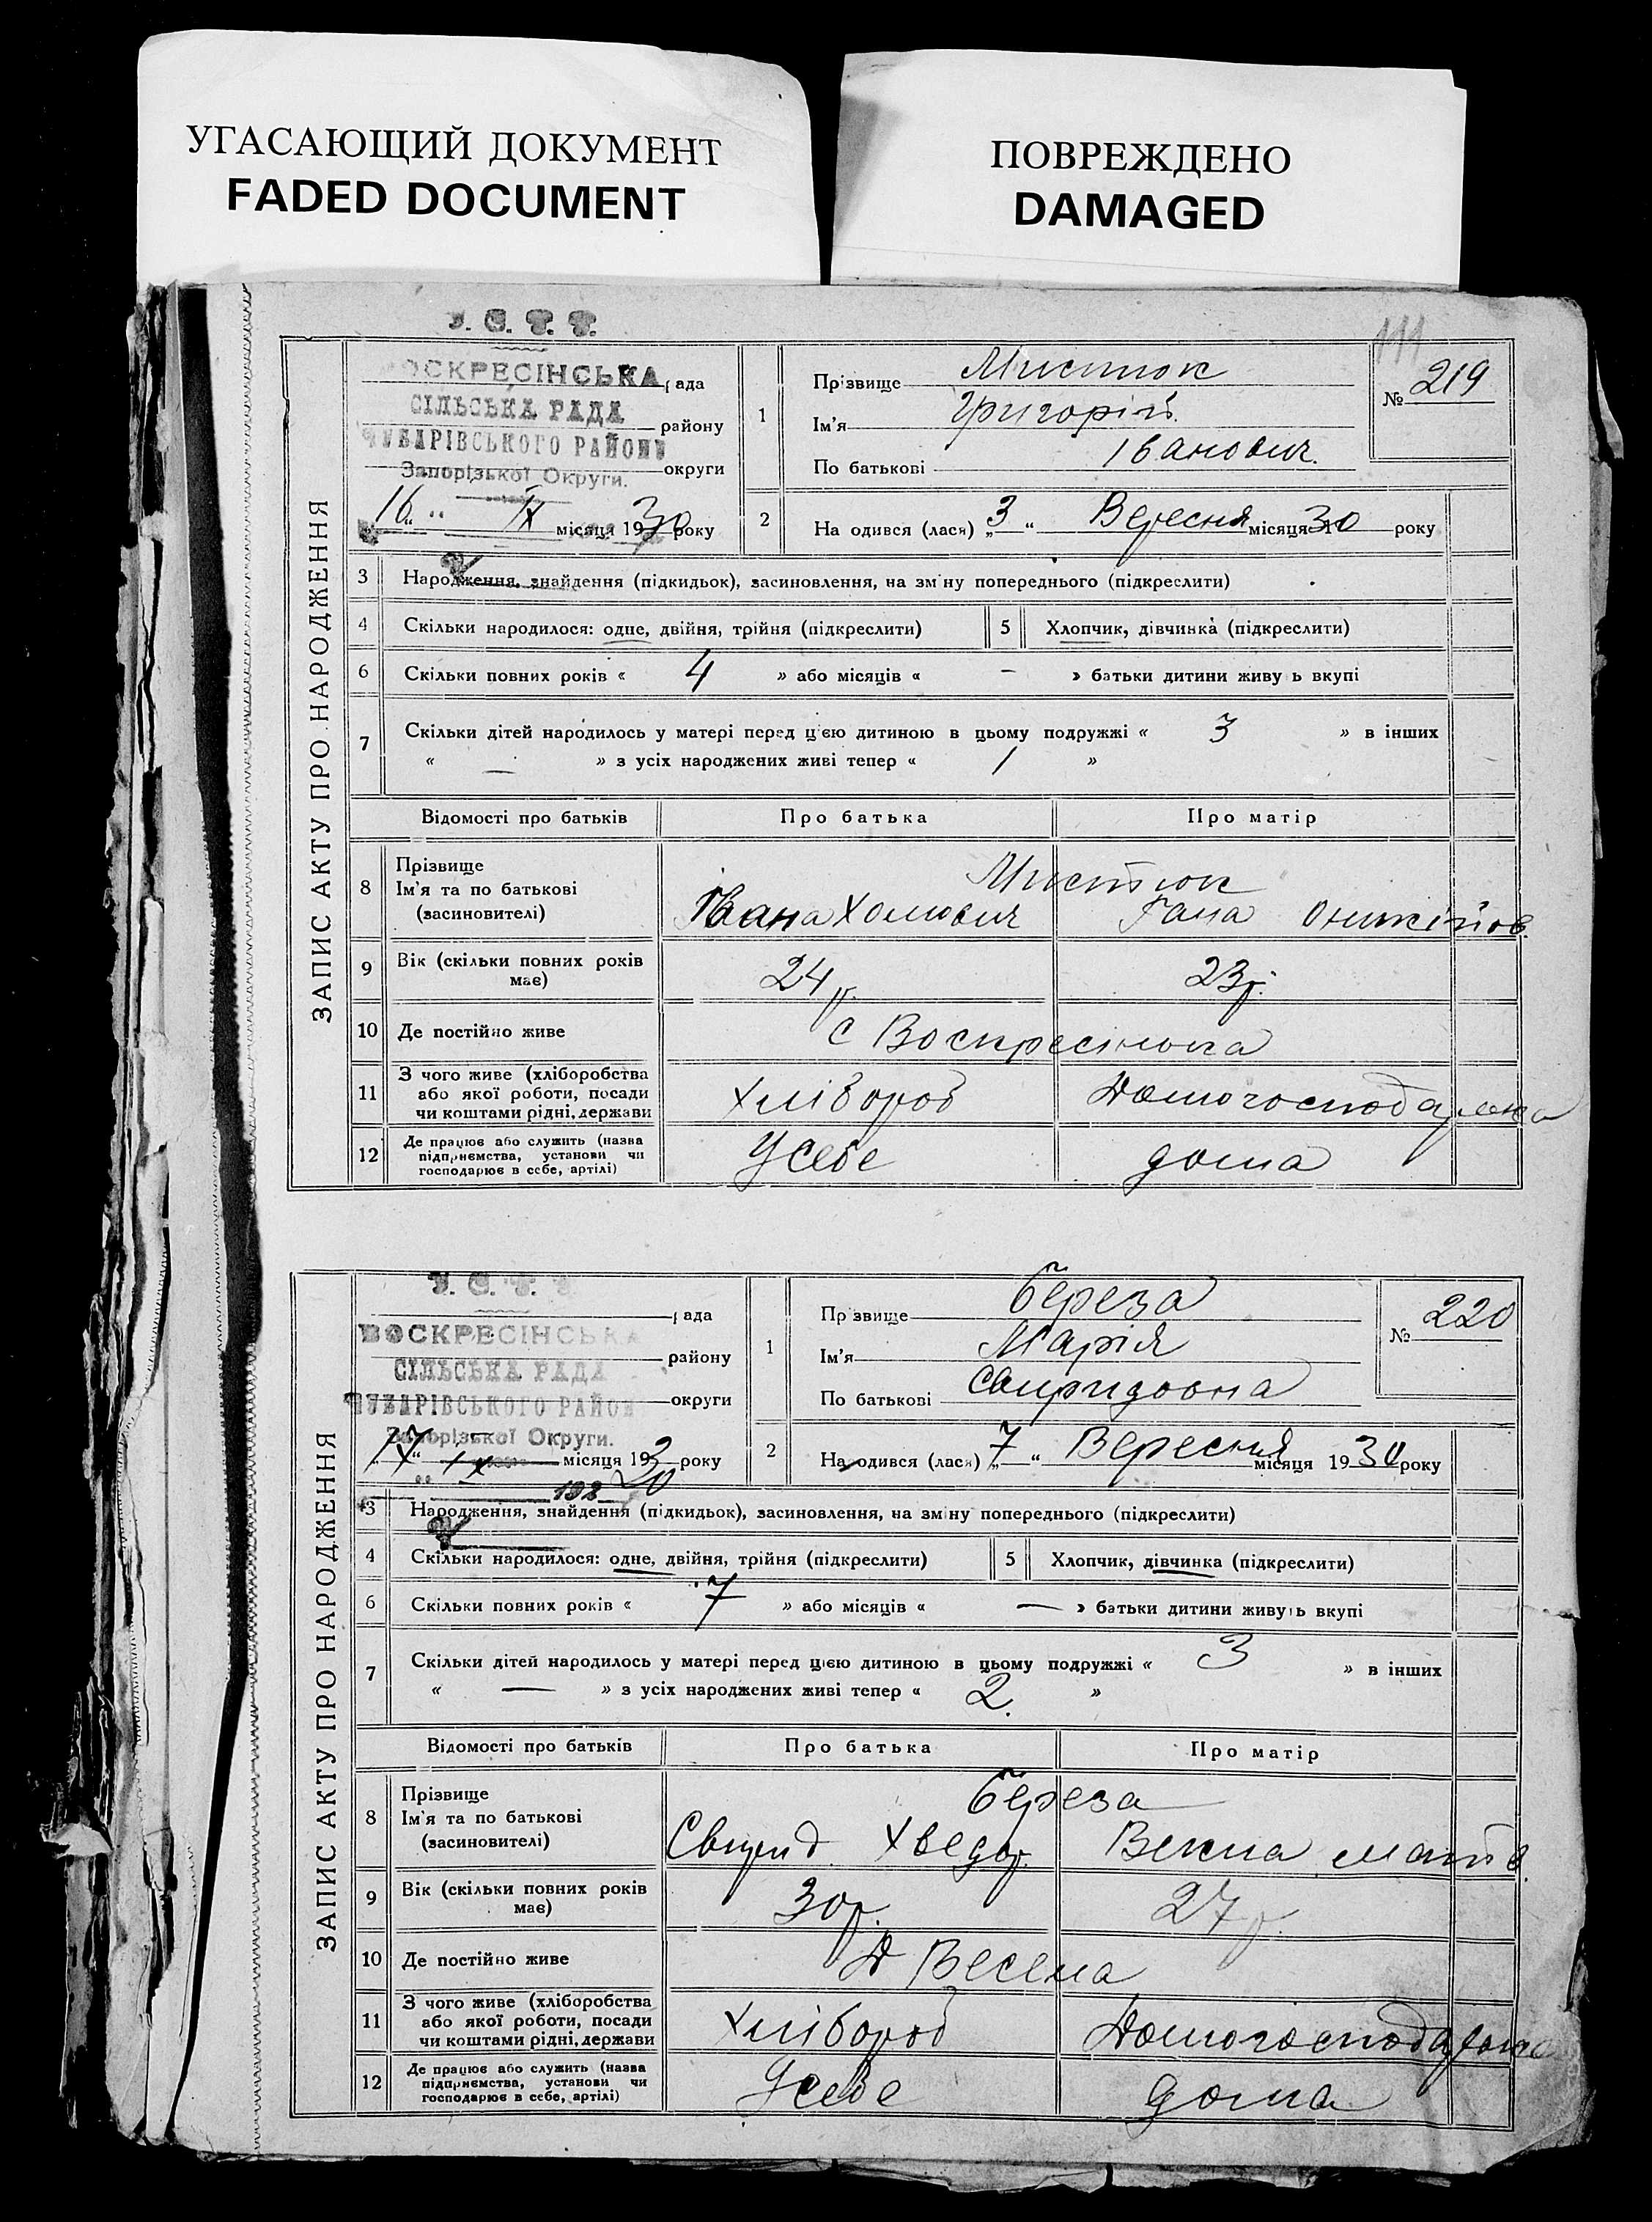 УГАСАЮЩИЙ ДОКУМЕНТ
FADED DOCUMENT
ПОВРЕЖДЕНО
DAMAGED
111
У. С. Р. Р.
ВОСКРЕСІНСЬКА рада
СІЛЬСЬКА РАДА
району
ЧУБАРІВСЬКОГО РАЙОНУ
Запорізької Округи. округи
„16“ IX місяця 1930 року
ЗАПИС АКТУ ПРО НАРОДЖЕННЯ
1
Прізвище
Ім'я Григорій
По батькові Іванович.
№ 219
2 На одився (лася) „3“ Вересня місяця 30 року
3 Народження, знайдення (підкидьок), засиновлення, на зміну попереднього (підкреслити)
4 Скільки народилося: одне, двійня, трійня (підкреслити) 5 Хлопчик, дівчинка (підкреслити)
6 Скільки повних років « 4 » або місяців « — » батьки дитини живу ь вкупі
7 Скільки дітей народилось у матері перед цією дитиною в цьому подружжі « 3 » в інших
« — » з усіх народжених живі тепер « 1 »
Відомості про батьків Про батька Про матір
8 Прізвище
Ім'я та по батькові
(засиновителі)
Івана Хомович Гана
9 Вік (скільки повних років має) 24 р. 23 р.
10 Де постійно живе с Воскресінька
11 З чого живе (хліборобства
або якої роботи, посади
чи коштами рідні, держави
Хлібороб Домогосподарька
12 Де працює або служить (назва
підприємства, установи чи
господарює в себе, артілі)
Усебе дома
У. С. Р.
рада
ВОСКРЕСІНСЬКА
району
СІЛЬСЬКА РАДА
округи
ЧУБАРІВСЬКОГО РАЙОН
Запорізької Округи.
„17“ IX місяця 1930 року
192
ЗАПИС АКТУ ПРО НАРОДЖЕННЯ
1
Пр звище Береза
Ім'я Марія
По батькові Свиридовна
№ 220
2 На одився (лася) „7“ Вересня місяця 1930 року
3 Народження, знайдення (підкидьок), засиновлення, на зміну попереднього (підкреслити)
4 Скільки народилося: одне, двійня, трійня (підкреслити) 5 Хлопчик, дівчинка (підкреслити)
6 Скільки повних років « 7 » або місяців « — » батьки дитини живуть вкупі
7 Скільки дітей народилось у матері перед цією дитиною в цьому подружжі « 3 » в інших
« — » з усіх народжених живі тепер « 2. »
Відомості про батьків Про батька Про матір
8 Прізвище
Ім'я та по батькові
(засиновителі)
Береза
Свирид. Хведор. Векла Матв
9 Вік (скільки повних років має) 30 р. 27 р.
10 Де постійно живе Д Весела
11 З чого живе (хліборобства
або якої роботи, посади
чи коштами рідні, держави
Хлібороб Домогосподарька
12 Де працює або служить (назва
підприємства, установи чи
господарює в себе, артілі)
Усебе дома